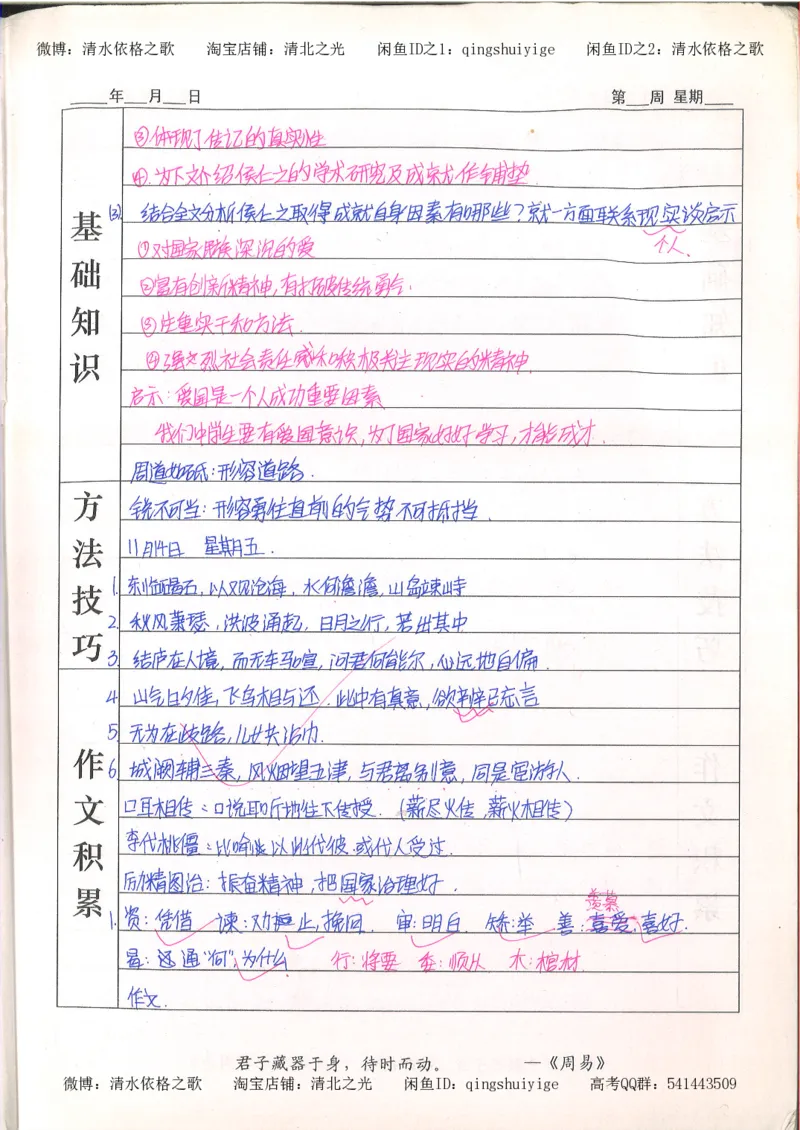 微博：清水依格之歌 淘宝店铺：清北之光 闲鱼ID之1：qingshuiyige 闲鱼ID之2：清水依格之歌
____年___月___日 第___周 星期____
③体现了传记的真实性
④.为下文介绍侯仁之的学术研究及成就作铺垫.
(3). 结合全文分析侯仁之取得成就自身因素有哪些？就一方面联系现实谈启示
个人.
①对国家民族深沉的爱
②富有创新精神,有打破传统勇气.
③注重实干和方法.
④强烈社会责任感和积极关注现实的精神.
启示：爱国是一个人成功重要因素
我们中学生要有爱国意识,为了国家好好学习,才能成才.
周道如砥：形容道路.
锐不可当：形容勇往直前的气势不可抵挡.
11月14日 星期五.
1. 东临碣石,以观沧海,水何澹澹,山岛竦峙
2. 秋风萧瑟,洪波涌起,日月之行,若出其中
3. 结庐在人境,而无车马喧,问君何能尔,心远地自偏.
4 山气日夕佳,飞鸟相与还.此中有真意,欲辩已忘言
5 无为在歧路,儿女共沾巾.
6. 城阙辅三秦,风烟望五津,与君离别意,同是宦游人.
口耳相传：口说耳听地往下传授.（薪尽火传,薪火相传）
李代桃僵：比喻以此代彼或代人受过.
励精图治：振奋精神,把国家治理好.
羡慕
1. 资：凭借 谏：劝止,挽回. 审：明白. 矫：举 善：喜爱,喜好.
曷：通“何”,为什么 行：将要 委：顺从 木：棺材.
作文.
基础知识
方法技巧
作文积累
君子藏器于身，待时而动。 —《周易》
微博：清水依格之歌 淘宝店铺：清北之光 闲鱼ID：qingshuiyige 高考QQ群：541443509